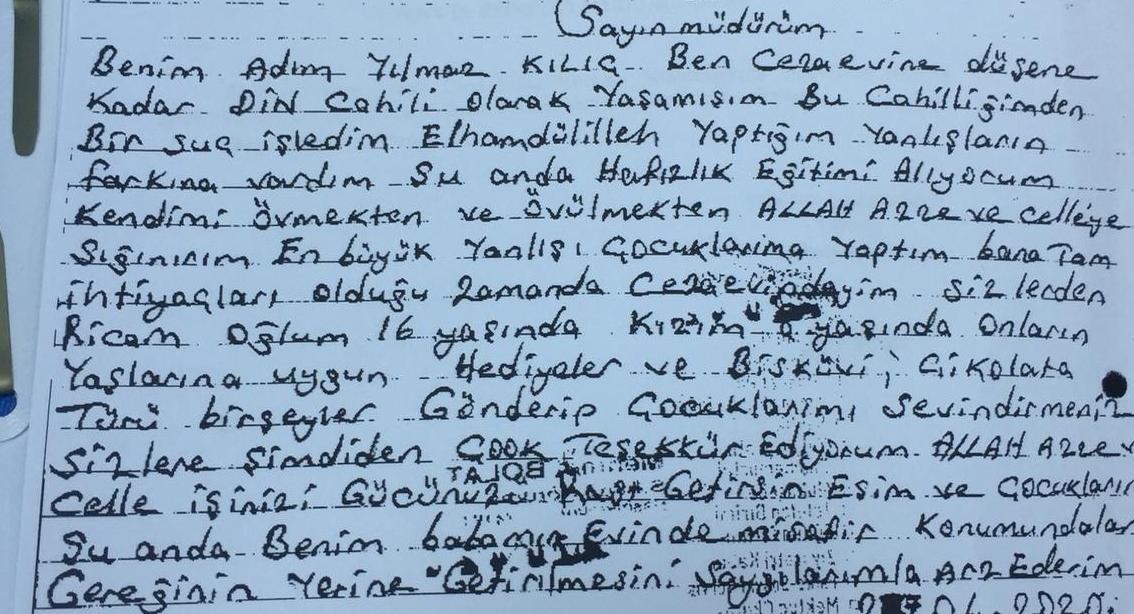 Sayın müdürüm
Benim Adım Yılmaz KILIÇ Ben Cezaevine düşene
Kadar DİN Cahili olarak Yaşamışım Bu Cahilliğimden
Bir suç işledim Elhamdülilleh Yaptığım Yanlışların
farkına vardım Şu anda Hafızlık Eğitimi Alıyorum
Kendimi övmekten ve övülmekten ALLAH Azze ve celleye
Sığınırım En büyük Yanlışı Çocuklarıma Yaptım bana Tam
ihtiyaçları olduğu zamanda Cezaevindeyim Sizlerden
Ricam Oğlum 16 yaşında Kızım yaşında Onların
Yaşlarına uygun Hediyeler ve Bisküvi, Çikolata
Türü birşeyler Gönderip Çocuklarımı Sevindirmeniz
Sizlere şimdiden ÇOOK Teşekkür Ediyorum ALLAH Azze v
BOLAT
Celle işinizi Gücünüzü Getirsin Eşim ve Çocukların
Şu anda Benim babamın Evinde misafir Konumundalar
Gereğinin Yerine Getirilmesini Saygılarımla Arz Ederim